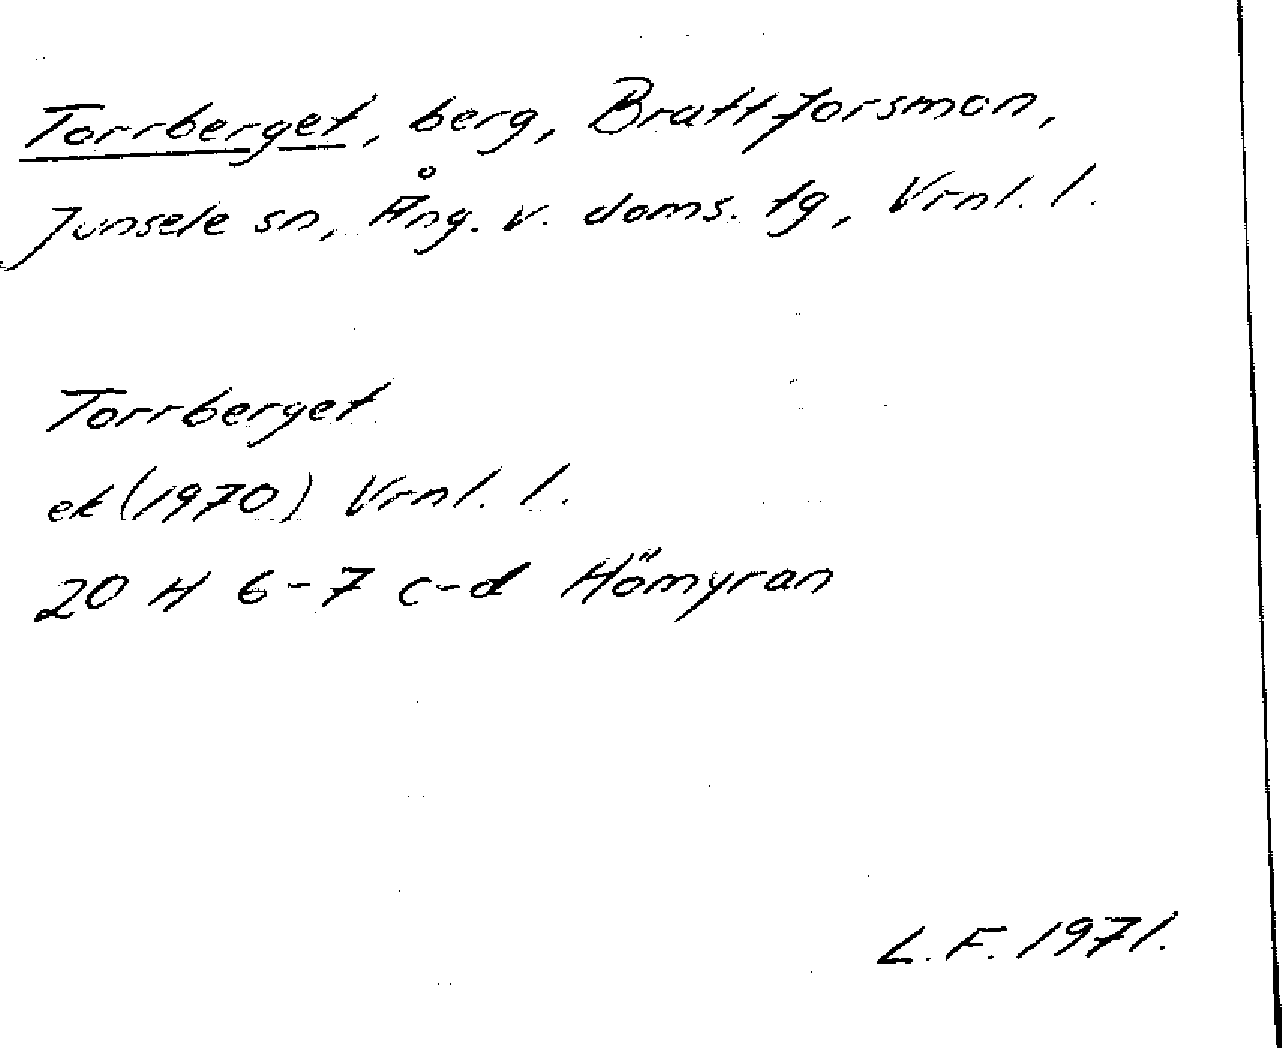 Torrberget, berg, Brattforsmon,
Junsele sn, Ång. v. doms. tg, Vrnl. l.
Torrberget
ek (1970) Vrnl. l.
20 H 6-7 c-d Hömyran
L. F. 1971.